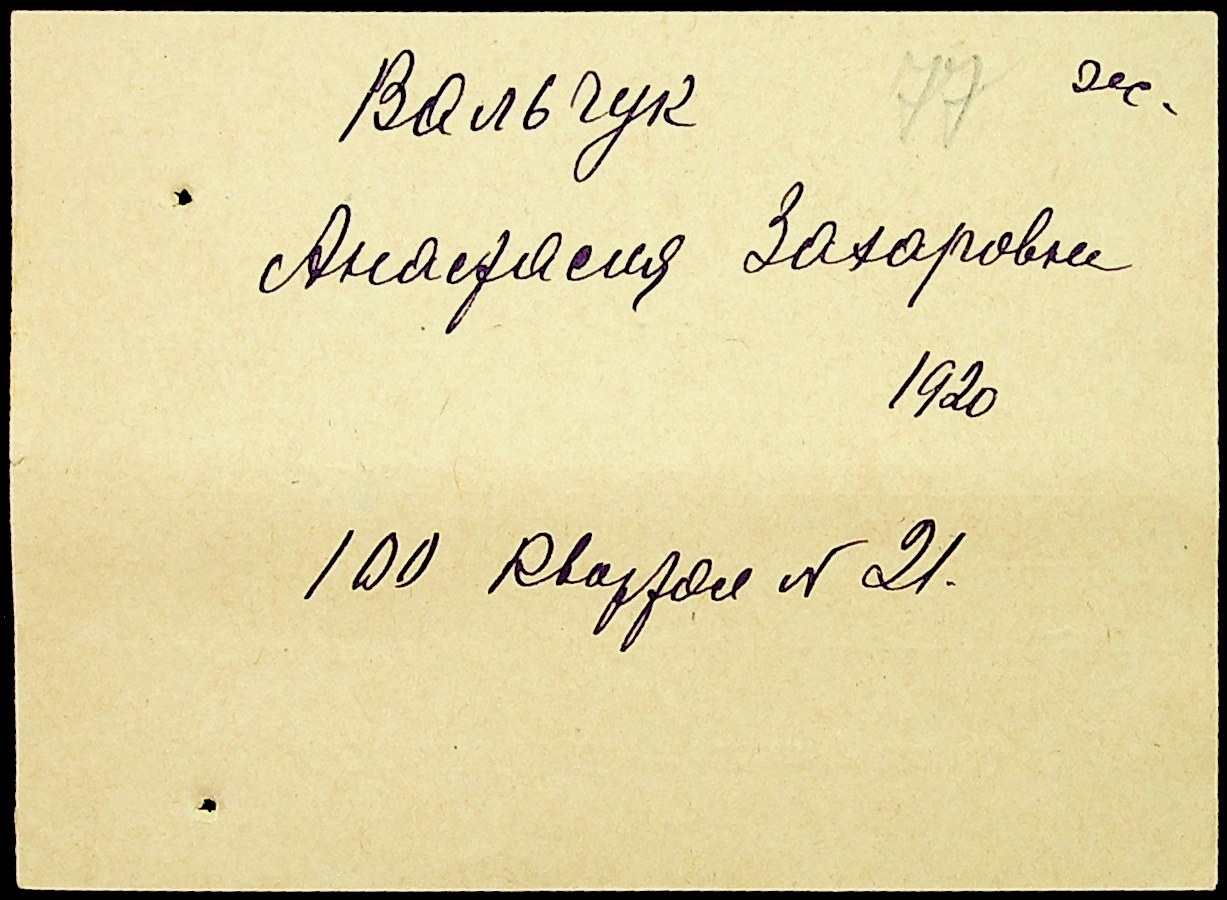 Вальчук 77 ж.
Анастасия Захаровна
1920
100 квартал N 21.